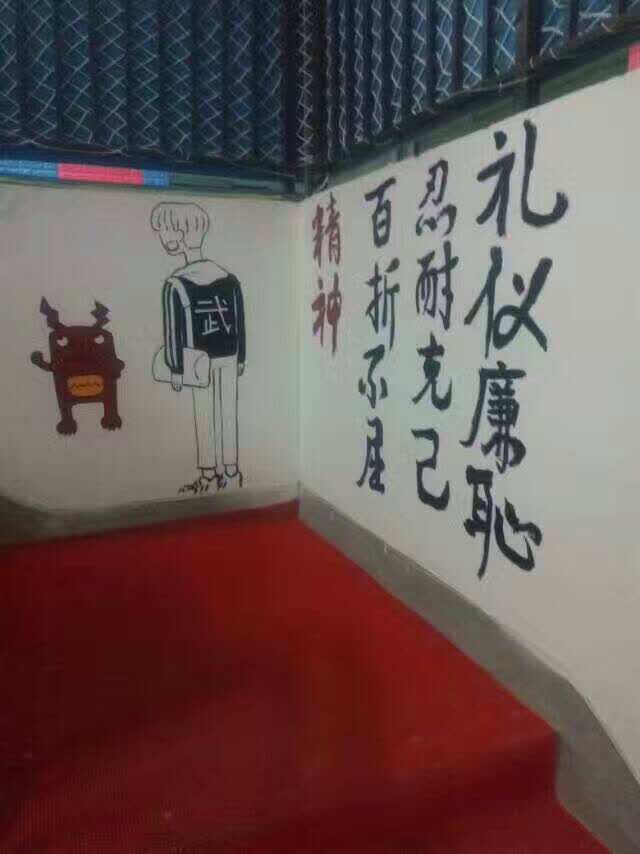 礼仪廉耻
忍耐克己
百折不屈
精神
武